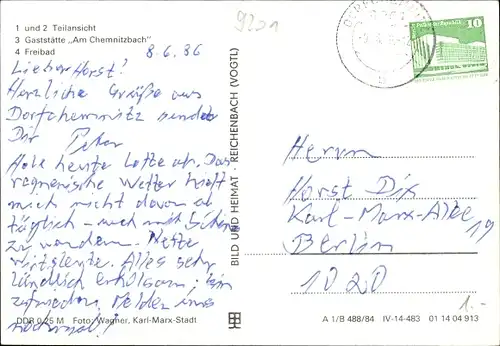 1 und 2 Teilansicht
3 Gaststätte "Am Chemnitzbach"
4 Freibad
8.6.86
Lieber Horst!
Herzliche Grüße aus
Dorfchemnitz sendet
Dir Peter
Hole heute Lotte ab. Das
regnerische Wetter hielt
mich nicht davon ab
täglich
zu wandern. Nette
Alles sehr
ländlich erholsam, bin
zufrieden. Melden uns
nochmal!
DDR 0,25 M Foto: Wagner, Karl-Marx-Stadt
BILD UND HEIMAT · REICHENBACH (VOGTL)
9201
10
Herrn
Horst Dix
Karl-Marx-Allee 19
Berlin
1020
1.-
A 1/B 488/84 IV-14-483 01 14 04 913